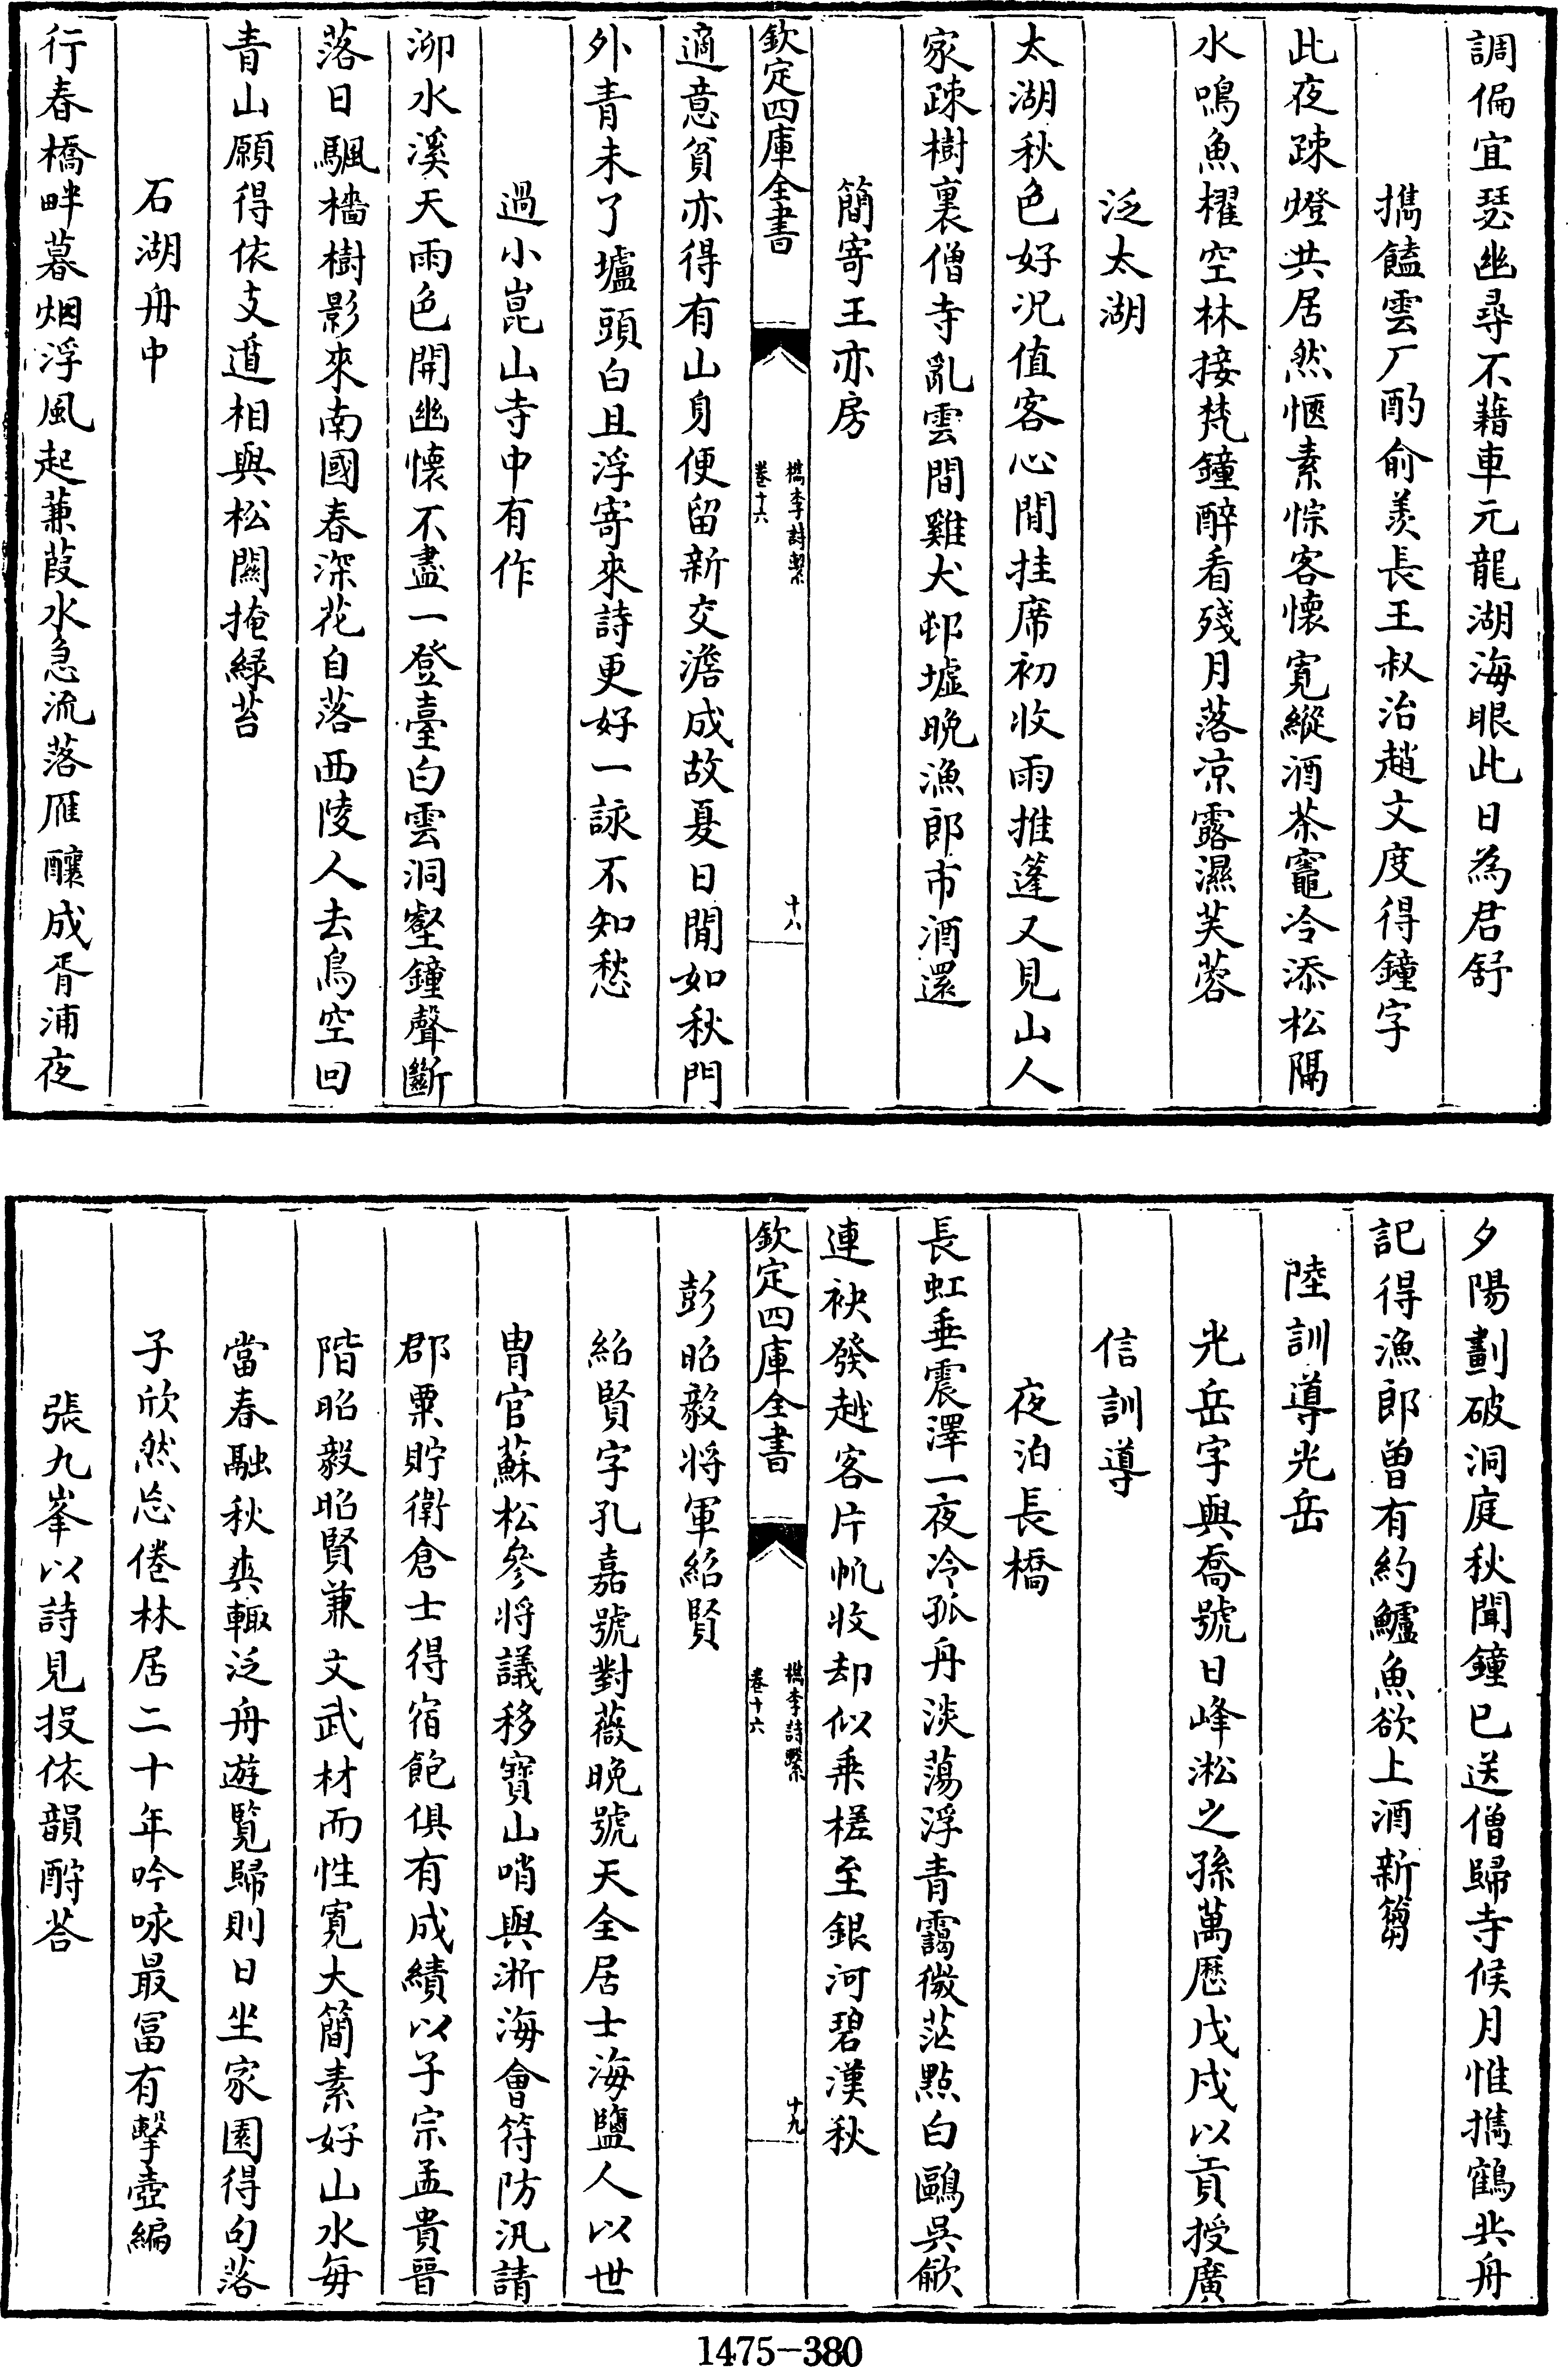 調偏宜瑟幽尋不藉車元龍湖海眼此日為君舒
攜饁雲厂酌俞羨長王叔治趙文度得鐘字
此夜疎燈共居然愜素悰客懷寛縱酒茶竈冷添松隔
水鳴魚櫂空林接梵鐘醉看殘月落凉露濕芙蓉
泛太湖
太湖秋色好况值客心閒挂席初收雨推篷又見山人
家疎樹裏僧寺亂雲間雞犬邨墟晩漁郎市酒還
簡寄王亦房
欽定四庫全書
檇李詩繫
卷十六
十八
適意貧亦得有山身便留新交澹成故夏日閒如秋門
外青未了壚頭白且浮寄來詩更好一詠不知愁
過小崑山寺中有作
泖水溪天雨色開幽懐不盡一登臺白雲洞壑鐘聲斷
落日颿檣樹影來南國春深花自落西陵人去鳥空回
青山願得依支遁相與松關掩緑苔
石湖舟中
行春橋畔暮烟浮風起蒹葭水急流落雁釀成胥浦夜
夕陽劃破洞庭秋聞鐘已送僧歸寺候月惟攜鶴共舟
記得漁郎曽有約鱸魚欲上酒新篘
陸訓導光岳
光岳字與喬號日峰淞之孫萬厯戊戌以貢授廣
信訓導
夜泊長橋
長虹垂震澤一夜冷孤舟淡蕩浮青靄微茫點白鷗吳歈
連袂發越客片帆收却似乗槎至銀河碧漢秋
欽定四庫全書
檇李詩繫
卷十六
十九
彭昭毅将軍紹賢
紹賢字孔嘉號對薇晩號天全居士海鹽人以世
胄官蘇松參将議移寶山哨與浙海會符防汛請
郡粟貯衛倉士得宿飽俱有成績以子宗孟貴晉
階昭毅昭賢兼文武材而性寛大簡素好山水毎
當春融秋爽輙泛舟遊覧歸則日坐家園得句落
子欣然忘倦林居二十年吟咏最富有擊壺編
張九峯以詩見投依韻酧荅
1475-380